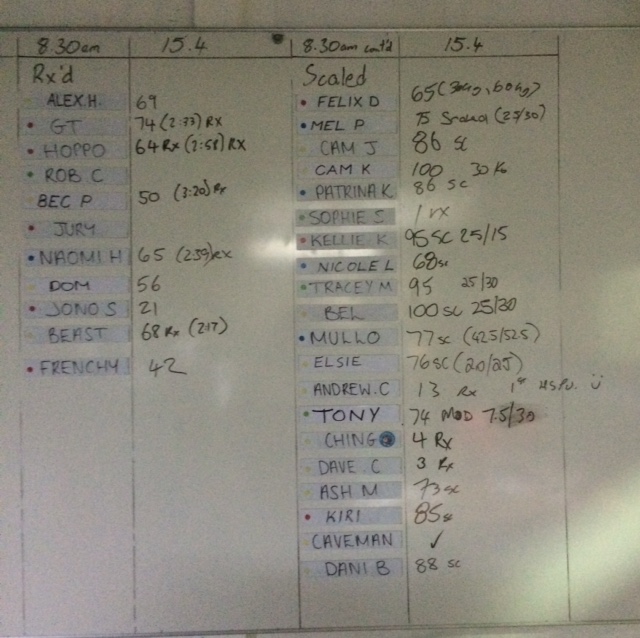 8.30am 15.4
Rx'd
ALEX.H. 69
GT 74 (2:33) RX
HOPPO 64 RX (2:58) RX
ROB C
BEC P 50 (3:20) Rx
JURY
NAOMI H 65 (2:59) RX
DOM 56
JONO S 21
BEAST 68 Rx (2:17)
FRENCHY 42
8.30am cont'd 15.4
Scaled
FELIX D 65 (30kg, 60kg)
MEL P 75 (25/30)
CAM J 86 sc
CAM K 100 30 Kg
PATRINA K 86 sc
SOPHIE S 1 rx
KELLIE K 95 SC 25/15
NICOLE L 68 sc
TRACEY M 95 25/30
BEL 100 SC 25/30
MULLO 77 sc (42.5/52.5)
ELSIE 76 SC (20/25)
ANDREW.C 13 Rx 1st HSPU.
TONY 74 MOD 7.5/30
CHING 4 Rx
DAVE.C 3 Rx
ASH M 73 sc
KIRI 85 sc
CAVEMAN ✓
DANI B 88 sc